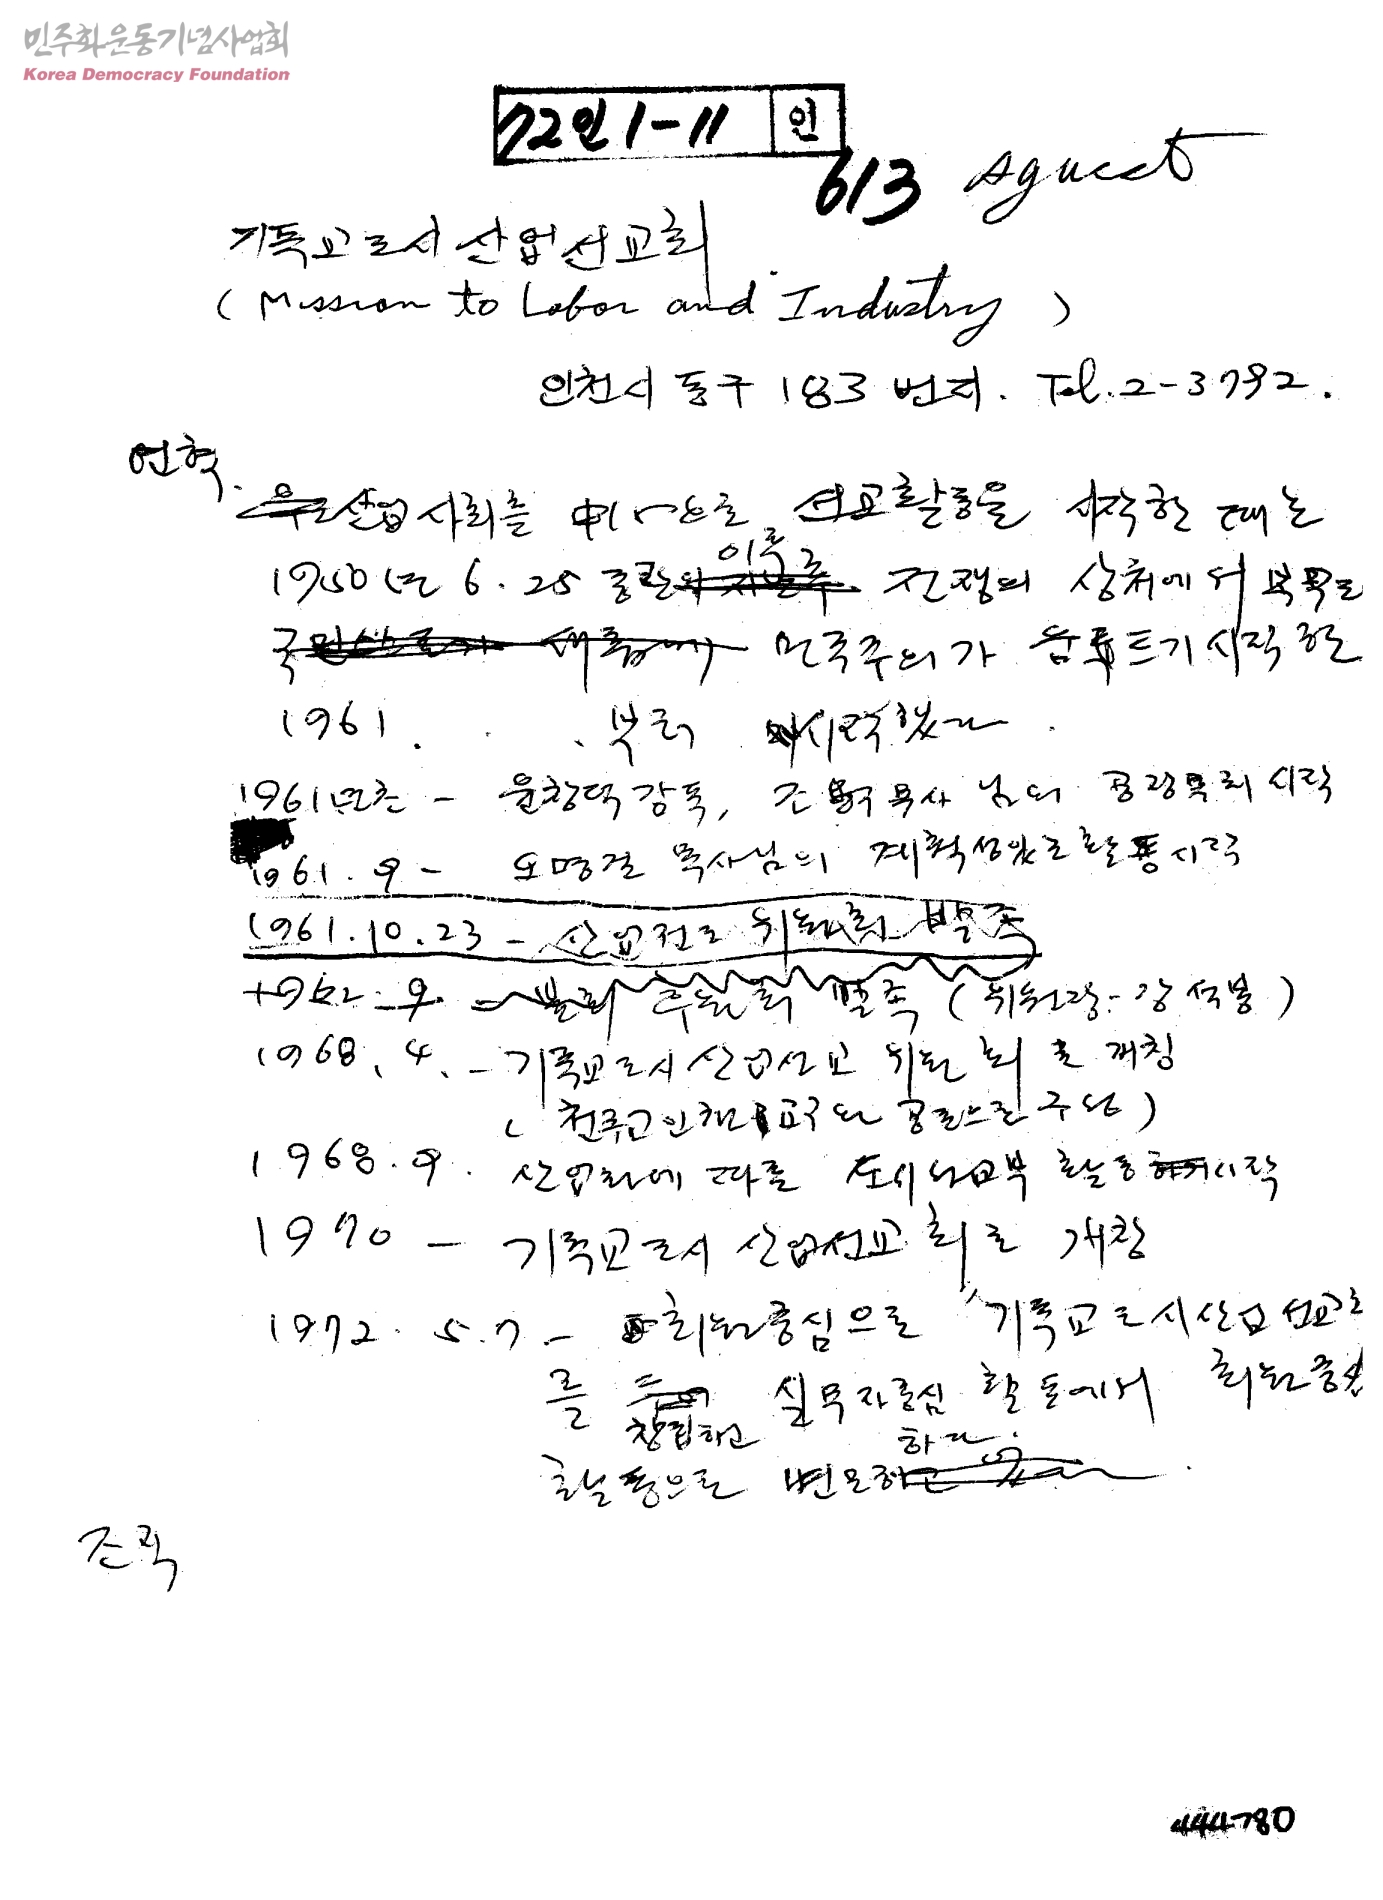 민주화운동기념사업회
Korea Democracy Foundation
72인1-11 인
613 Agucst
기독교도시산업선교회
(Mission to Labor and Industry)
인천시 동구 183 번지. Tel. 2-3792.
연혁.
산업사회를 中心으로 선교활동을 시작한 때는
이후로
1950년 6.25 동란 전쟁의 상처에서
민주주의가 움트기 시작한
1961. 부터 시작했다.
1961년초 - 윤창덕감독, 조 목사님의 공장목회 시작
1961.9 - 오명걸 목사님의 계획성있는 활동시작
1961.10.23 - 산업전도 위원회 발족
1962.9. - 본회 후원회 발족 (위원장-강석봉)
1968.4. - 기독교도시산업선교 위원회로 개칭
(천주교인천교구와 공동으로 구성)
1968.9. 산업화에 따른 도시선교부 활동시작
1970 - 기독교도시산업선교회로 개칭
1972.5.7 - 회원중심으로 '기독교도시산업선교회
를 실무자중심 활동에서 회원중심
창립하고 하다.
활동으로 변모하고
조직
444780